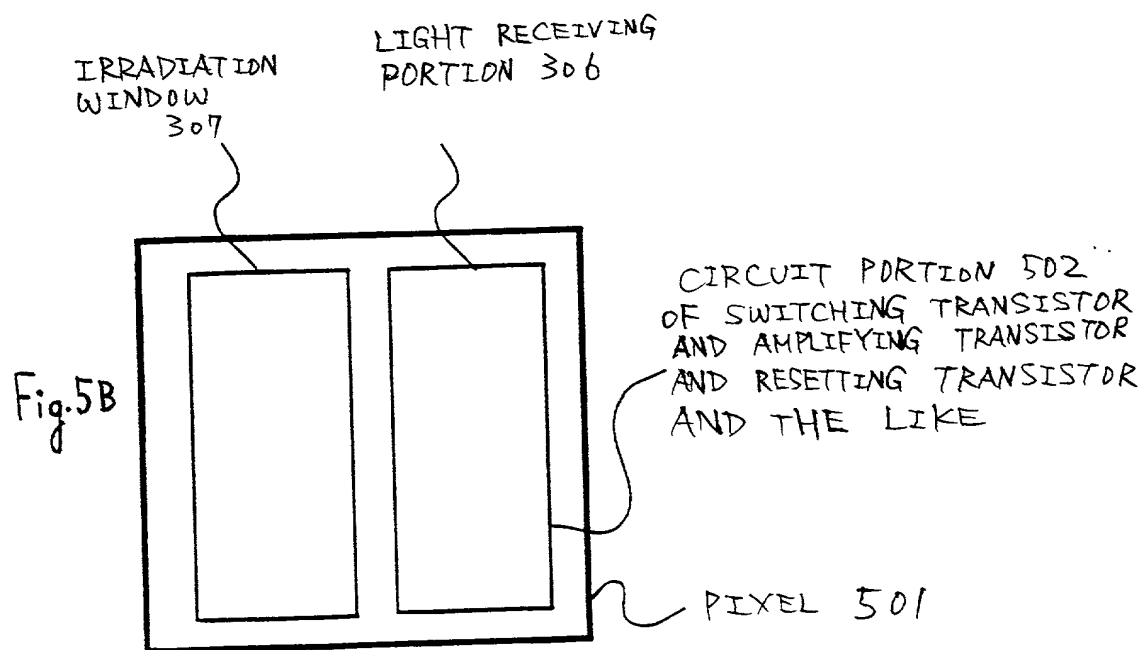 IRRADIATION
WINDOW
307
LIGHT RECEIVING
PORTION 306
Fig.5B
CIRCUIT PORTION 502
OF SWITCHING TRANSISTOR
AND AMPLIFYING TRANSISTOR
AND RESETTING TRANSISTOR
AND THE LIKE
PIXEL 501